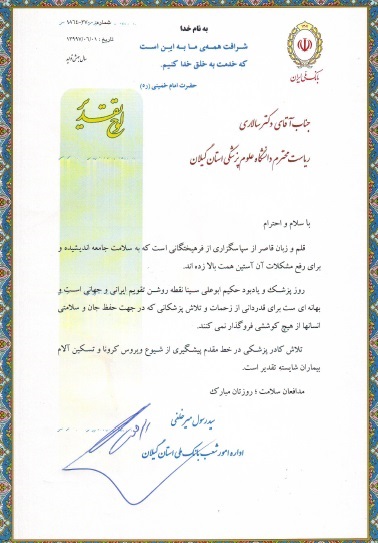 به نام خدا
شرافت همه‌ی ما به این است
که خدمت به خلق خدا کنیم.
حضرت امام خمینی (ره)
بانک ملی ایران
لوح تقدیر
جناب آقای دکتر سالاری
ریاست محترم دانشگاه علوم پزشکی استان گیلان
با سلام و احترام
قلم و زبان قاصر از سپاسگزاری از فرهیختگانی است که به سلامت جامعه اندیشیده و
برای رفع مشکلات آن آستین همت بالا زده اند.
روز پزشک و یادبود حکیم ابوعلی سینا نقطه روشن تقویم ایرانی و جهانی است و
بهانه ای ست برای قدردانی از زحمات و تلاش پزشکانی که در جهت حفظ جان و سلامتی
انسانها از هیچ کوششی فروگذار نمی کنند.
تلاش کادر پزشکی در خط مقدم پیشگیری از شیوع ویروس کرونا و تسکین آلام
بیماران شایسته تقدیر است.
مدافعان سلامت ؛ روزتان مبارک
سیدرسول میرخلفی
اداره امور شعب بانک ملی استان گیلان